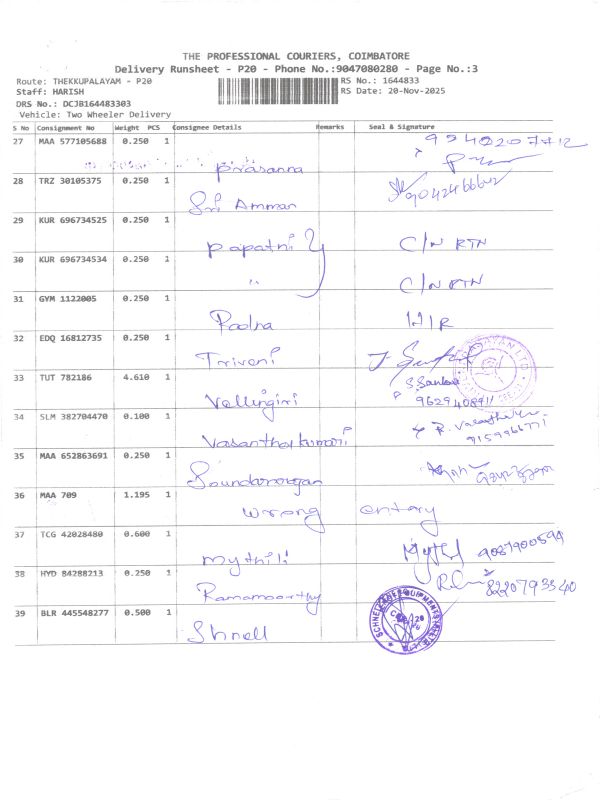 THE PROFESSIONAL COURIERS, COIMBATORE
Delivery Runsheet - P20 - Phone No.:9047080280 - Page No.:3
Route: THEKKUPALAYAM - P20 RS No.: 1644833
Staff: HARISH RS Date: 20-Nov-2025
DRS No.: DCJB164483303
Vehicle: Two Wheeler Delivery
S No Consignment No Weight PCS Consignee Details Remarks Seal & Signature
27 MAA 577105688 0.250 1
Prasanna
28 TRZ 30105375 0.250 1
Sri Amman 9042466642
29 KUR 696734525 0.250 1
Papathi C/N RTN
30 KUR 696734534 0.250 1
" C/N RTN
31 GYM 1122005 0.250 1
Radha H/R
32 EDQ 16812735 0.250 1
Triveni
33 TUT 782186 4.610 1
Vellingiri 9629408911
34 SLM 382704470 0.100 1
Vasanthakumari 9159966771
35 MAA 652863691 0.250 1
Soundararajan
36 MAA 709 1.195 1
Wrong entary
37 TCG 42028480 0.600 1
Mythili 9087900594
38 HYD 84288213 0.250 1
Ramamoorthy 8220793340
39 BLR 445548277 0.500 1
Shnell